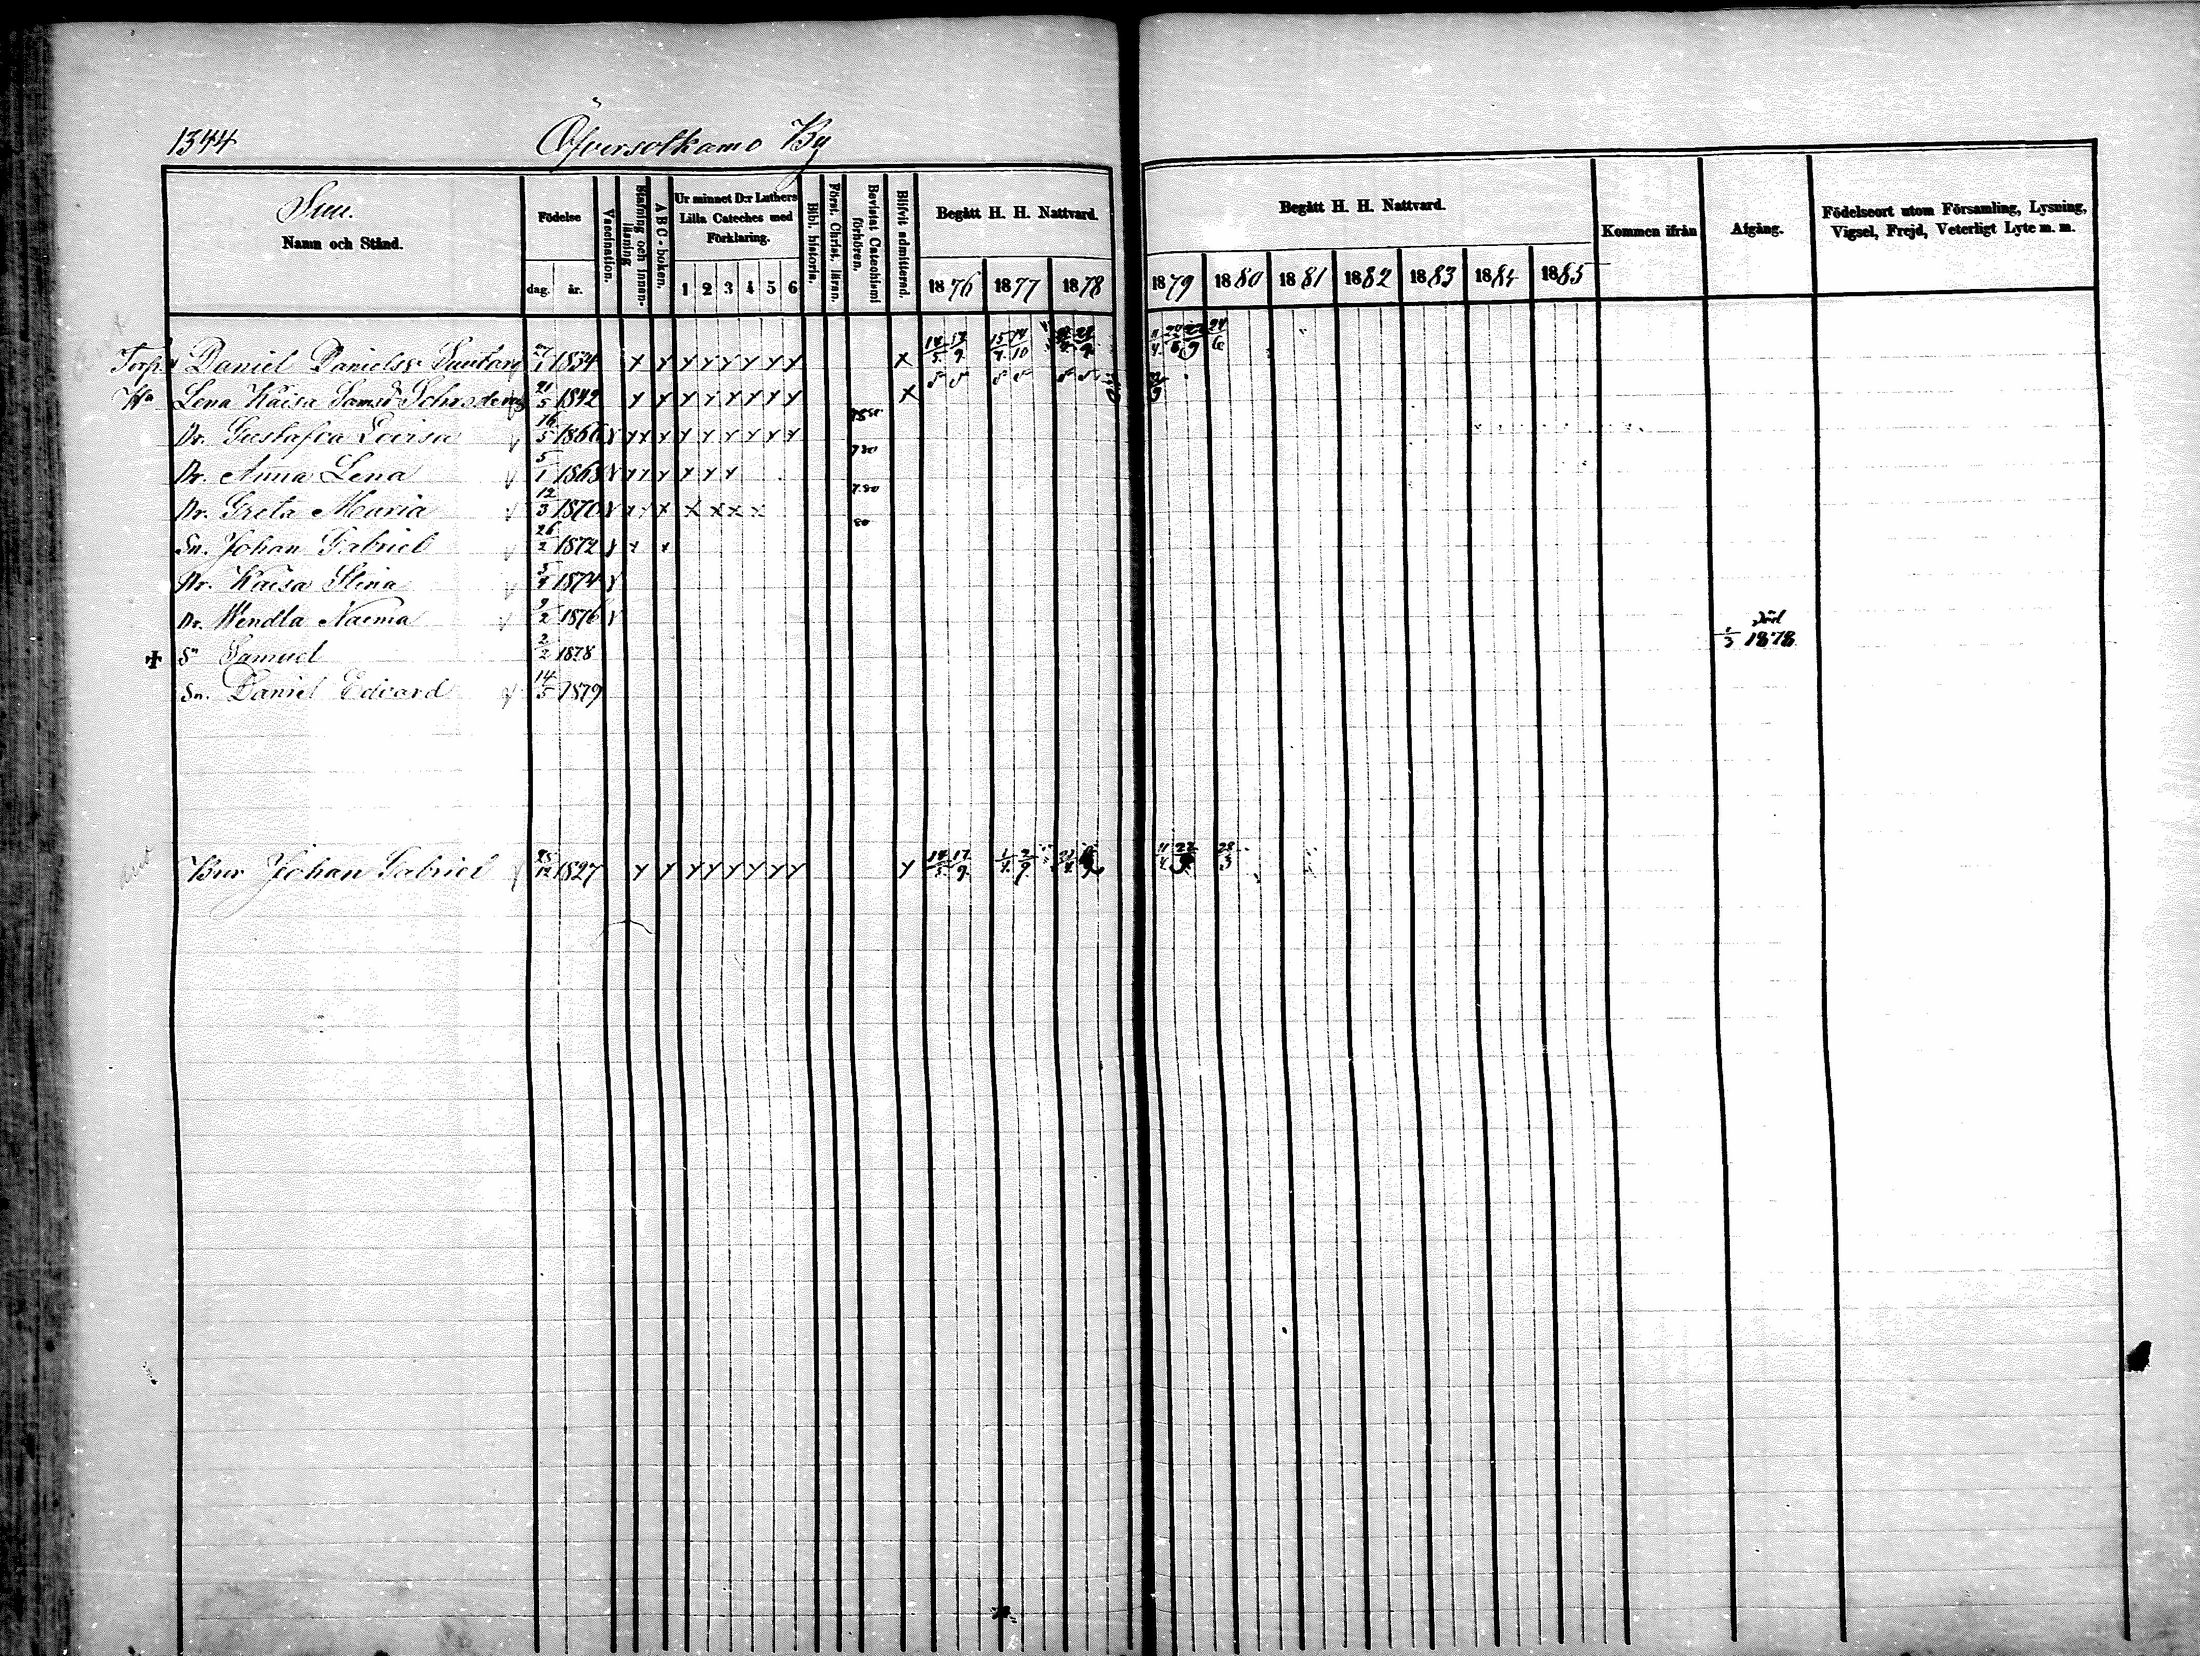 1344 Öfversotkamo By
Suu.
Namn och Stånd.
Födelse
dag. år.
Vaccination.
Stafning och innanläsning
ABC-boken.
Ur minnet D:r Luthers
Lilla Cateches med
Förklaring.
1 2 3 4 5 6
Bibl. historia.
Först. Christ. läran.
Bevistat Catechismi förhören.
Blifvit admitterad.
Begått H. H. Nattvard.
1876 1877 1878
Begått H. H. Nattvard.
1879 1880 1881 1882 1883 1884 1885
Kommen ifrån
Afgång.
Födelseort utom Församling, Lysning,
Vigsel, Frejd, Veterligt Lyte m. m.
Torp. Daniel Danielss. 27/1 1834 14/5 17/9 15/4 14/10
Hu Lena Kaisa Samsd. Schroderus 21/5 1842
Dr. Gustafva Lovisa 16/5 1866
Dr. Anna Lena 5/1 1868 780
Dr. Greta Maria 12/3 1870 7.80
Sn. Johan Gabriel 26/2 1872 80
Dr. Kaisa Stina 5/4 1874
Dr. Wendla Naema 9/2 1876
Sn Samuel 2/2 1878 död 1/3 1878
Sn. Daniel Edvard 14/5 1879
Bror Johan Gabriel 25/12 1827 14/5 17/9 1/4 2/9 11/4 28/3